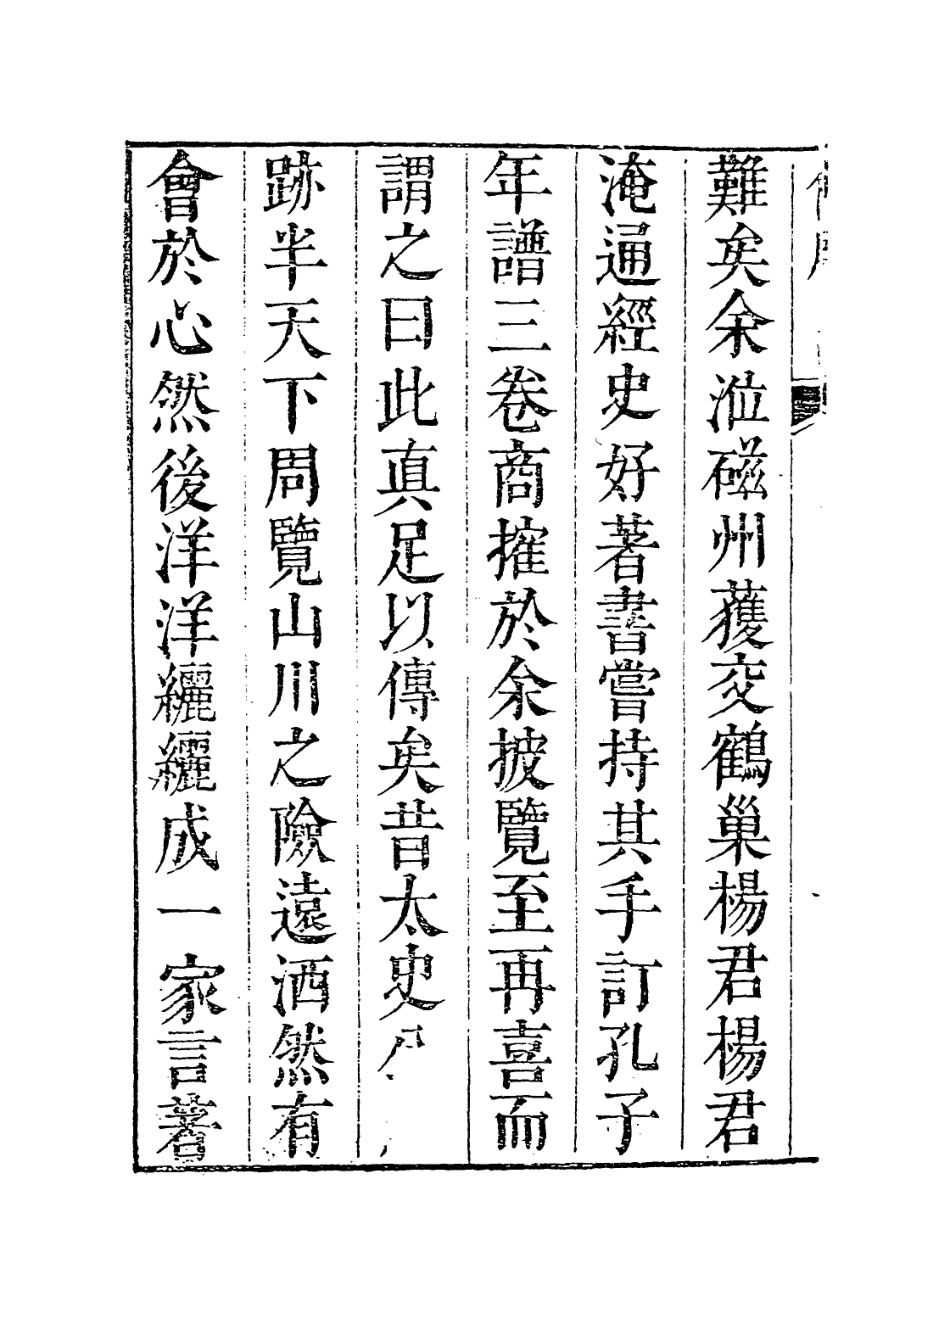 難矣余涖磁州獲交鶴巢楊君楊君
淹通經史好著書嘗持其手訂孔子
年譜三卷商搉於余披覽至再喜而
謂之曰此真足以傳矣昔太史
跡半天下周覽山川之險遠洒然有
會於心然後洋洋纚纚成一家言著